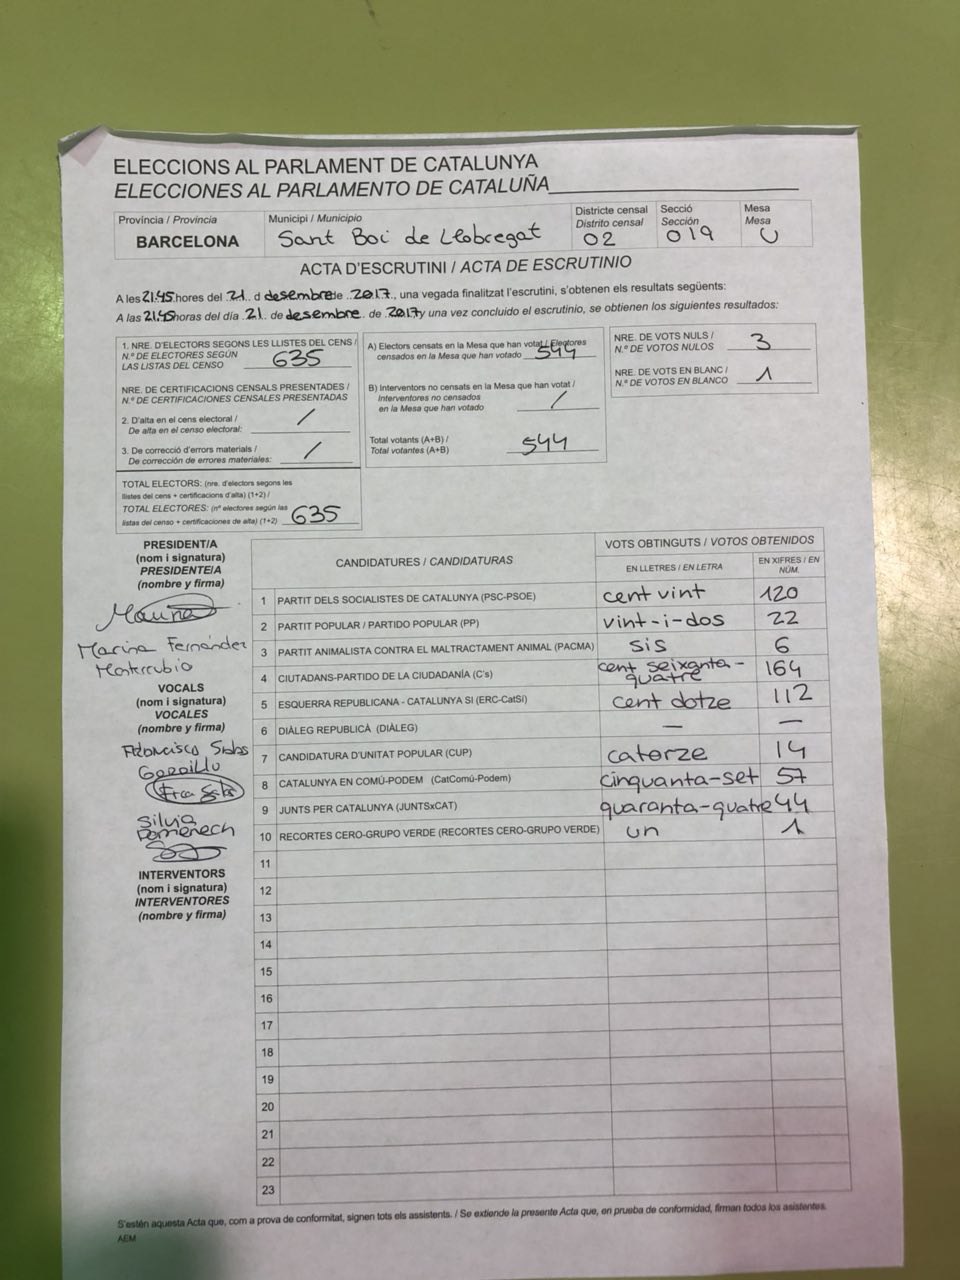 ELECCIONS AL PARLAMENT DE CATALUNYA
ELECCIONES AL PARLAMENTO DE CATALUÑA
Província / Provincia
BARCELONA
Municipi / Municipio
Sant Boi de Llobregat
Districte censal
Distrito censal
02
Secció
Sección
019
Mesa
Mesa
U
ACTA D'ESCRUTINI / ACTA DE ESCRUTINIO
A les 21.45 hores del 21 d desembre de 2017, una vegada finalitzat l'escrutini, s'obtenen els resultats següents:
A las 21.45 horas del día 21 de desembre de 2017 y una vez concluido el escrutinio, se obtienen los siguientes resultados:
1. NRE. D'ELECTORS SEGONS LES LLISTES DEL CENS /
N.º DE ELECTORES SEGÚN
LAS LISTAS DEL CENSO 635
NRE. DE CERTIFICACIONS CENSALS PRESENTADES /
N.º DE CERTIFICACIONES CENSALES PRESENTADAS
2. D'alta en el cens electoral /
De alta en el censo electoral: /
3. De correcció d'errors materials /
De corrección de errores materiales: /
TOTAL ELECTORS: (nre. d'electors segons les
llistes del cens + certificacions d'alta) (1+2) /
TOTAL ELECTORES: (nº electores según las
listas del censo + certificaciones de alta) (1+2) 635
A) Electors censats en la Mesa que han votat / Electores
censados en la Mesa que han votado 544
B) Interventors no censats en la Mesa que han votat /
Interventores no censados
en la Mesa que han votado /
Total votants (A+B) /
Total votantes (A+B) 544
NRE. DE VOTS NULS /
N.º DE VOTOS NULOS 3
NRE. DE VOTS EN BLANC /
N.º DE VOTOS EN BLANCO 1
PRESIDENT/A
(nom i signatura)
PRESIDENTE/A
(nombre y firma)
Marina
Marina Fernández
Monterrubio
VOCALS
(nom i signatura)
VOCALES
(nombre y firma)
Francisco
Gordillo
Silvia
Domenech
INTERVENTORS
(nom i signatura)
INTERVENTORES
(nombre y firma)
CANDIDATURES / CANDIDATURAS
VOTS OBTINGUTS / VOTOS OBTENIDOS
EN LLETRES / EN LETRA
EN XIFRES / EN NÚM.
1 PARTIT DELS SOCIALISTES DE CATALUNYA (PSC-PSOE) cent vint 120
2 PARTIT POPULAR / PARTIDO POPULAR (PP) vint-i-dos 22
3 PARTIT ANIMALISTA CONTRA EL MALTRACTAMENT ANIMAL (PACMA) sis 6
4 CIUTADANS-PARTIDO DE LA CIUDADANÍA (C's) cent seixanta-quatre 164
5 ESQUERRA REPUBLICANA - CATALUNYA SI (ERC-CatSí) cent dotze 112
6 DIÀLEG REPUBLICÀ (DIÀLEG) — —
7 CANDIDATURA D'UNITAT POPULAR (CUP) catorze 14
8 CATALUNYA EN COMÚ-PODEM (CatComú-Podem) cinquanta-set 57
9 JUNTS PER CATALUNYA (JUNTSxCAT) quaranta-quatre 44
10 RECORTES CERO-GRUPO VERDE (RECORTES CERO-GRUPO VERDE) un 1
11
12
13
14
15
16
17
18
19
20
21
22
23
S'estén aquesta Acta que, com a prova de conformitat, signen tots els assistents. / Se extiende la presente Acta que, en prueba de conformidad, firman todos los asistentes.
AEM